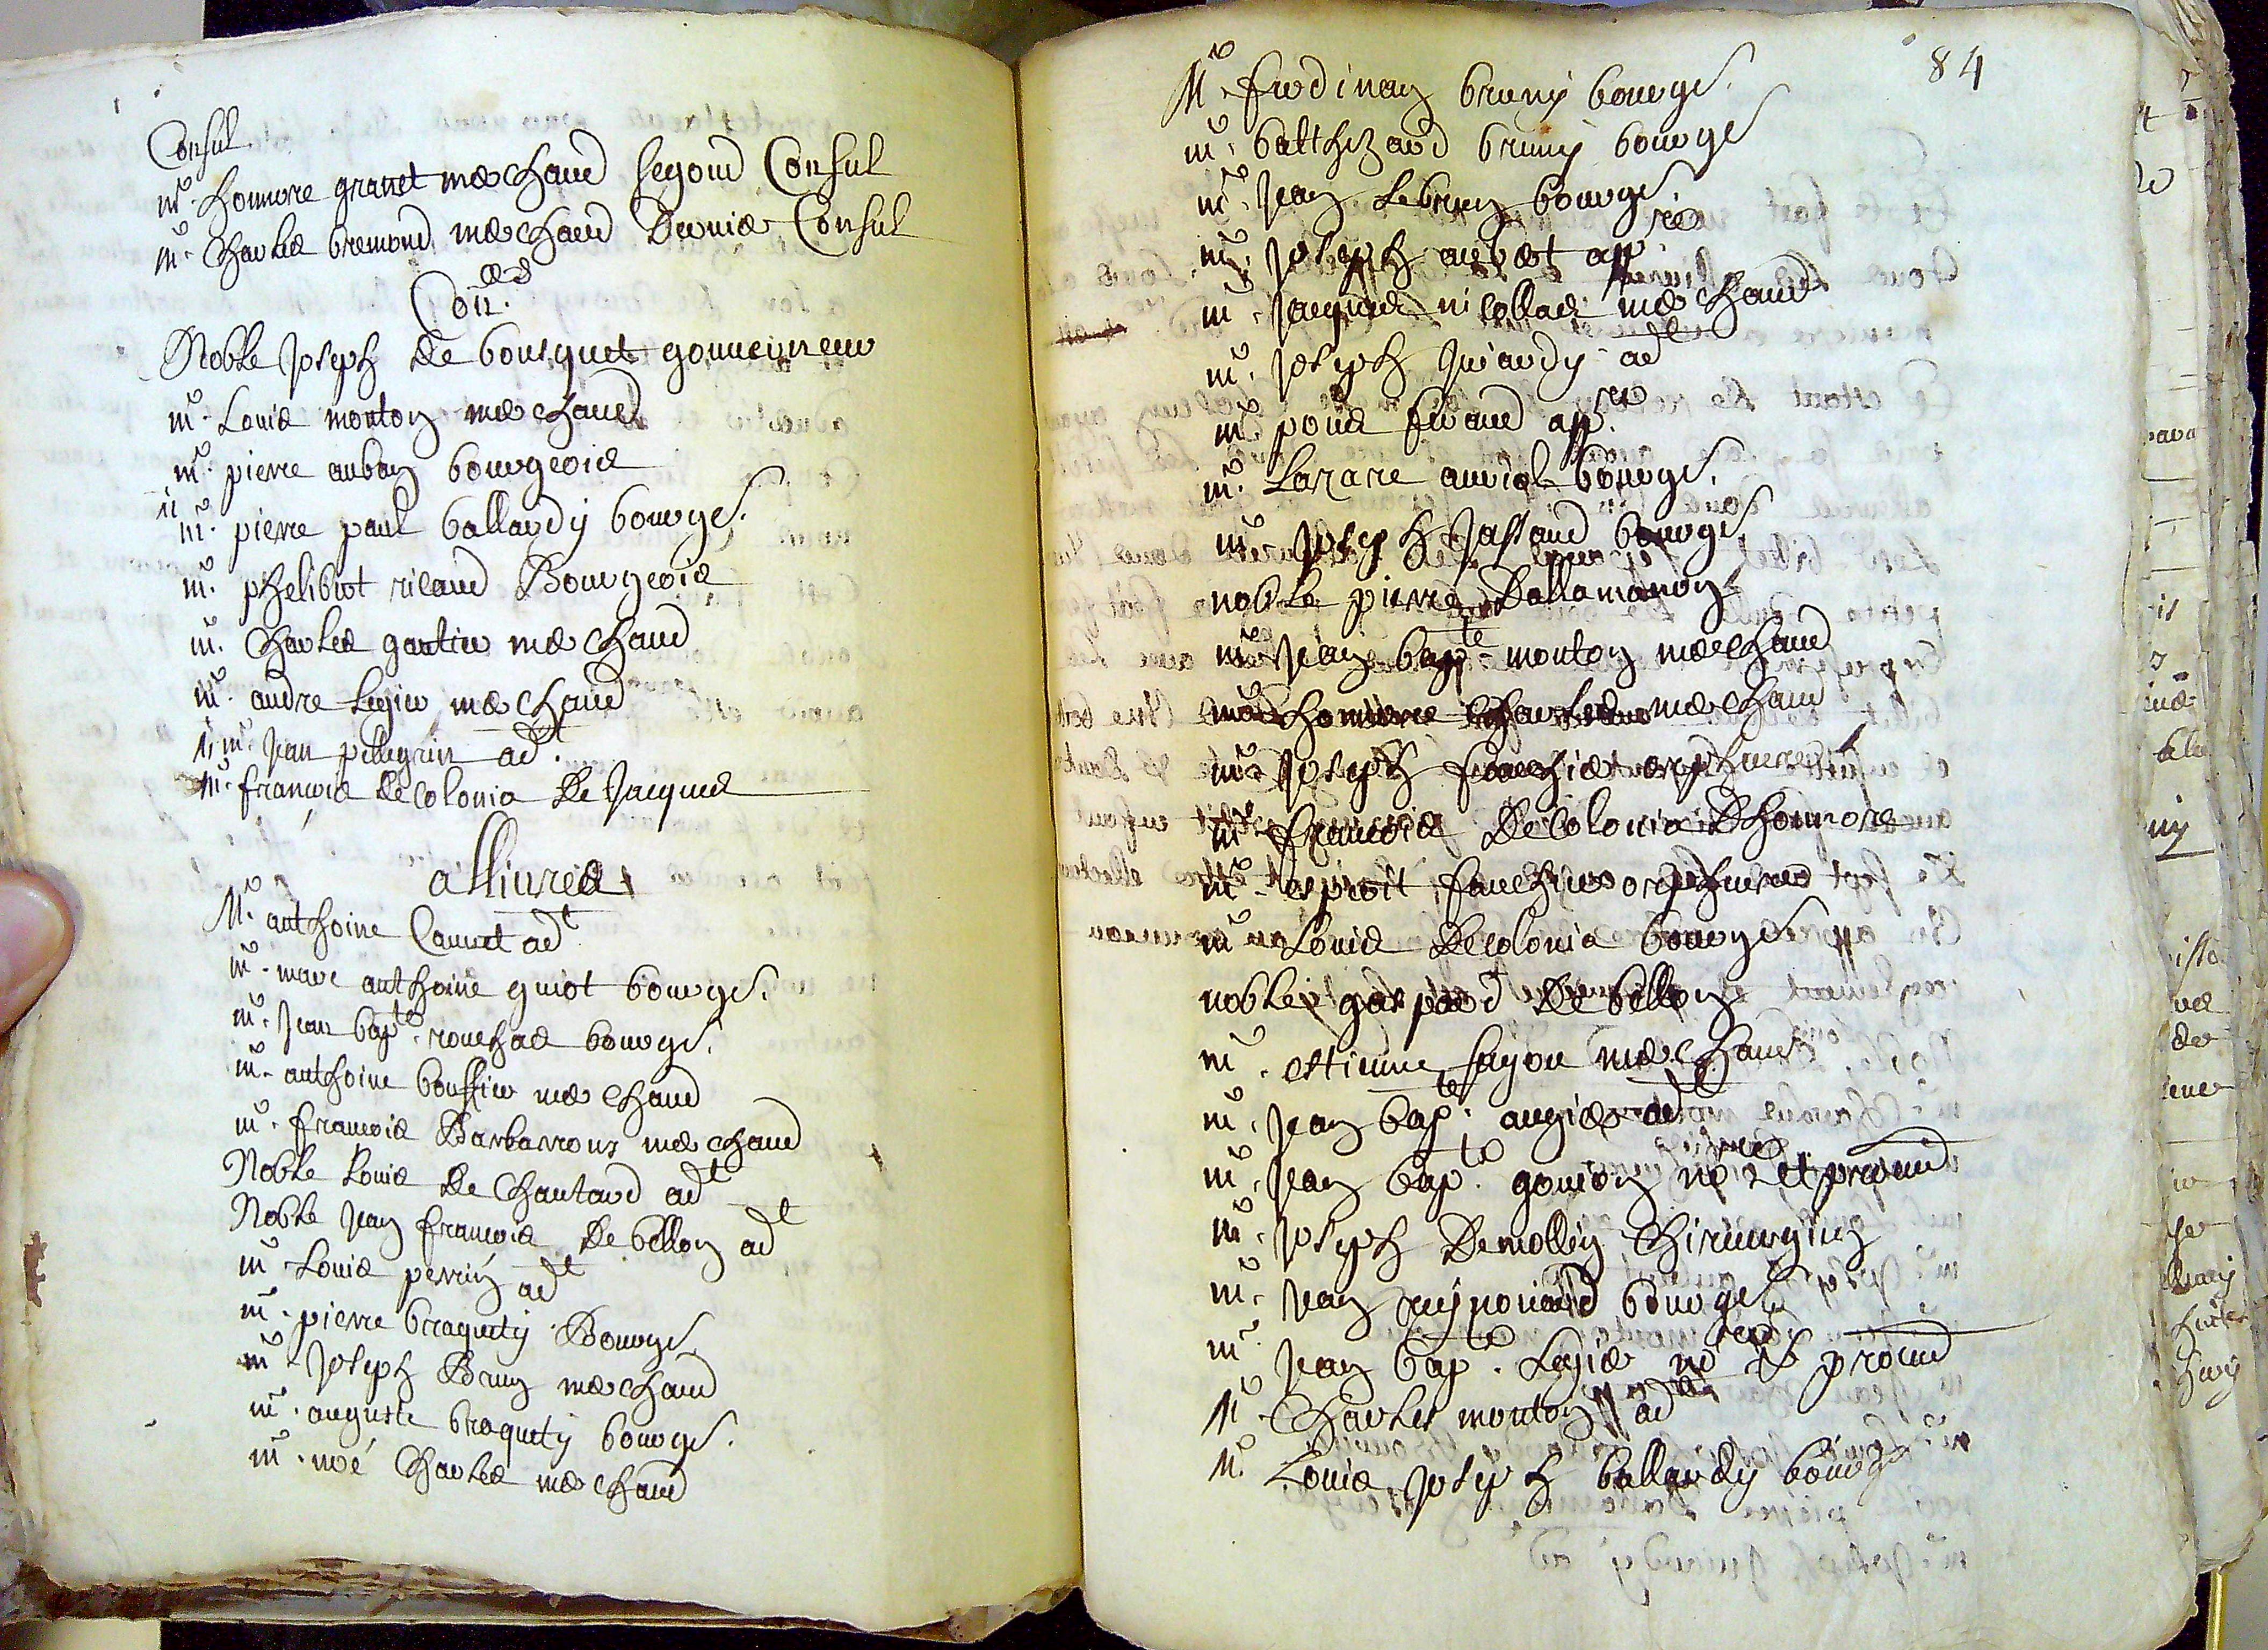 Consul
mr. honnore granet marchand segond Consul
mr. Charles bremond marchand dernier Consul
Con.ers
Noble Joseph de bousquet gouverneur
mr. Louis mouton marchand
mr. pierre auban bourgeois
mr. pierre paul ballardy bourgs.
mr. phelibert ricaud Bourgeois
mr. Charles gantier marchand
mr. andre Legier marchand
mr. Jean pellegrin adt.
mr. francois de Colonia de Jacques
alliures
Mr. anthoine Cauvet adt
mr. marc anthoine guiot bourgs.
mr. Jean bapte. rouchas bourgs.
mr. anthoine bouffier marchand
mr. francois Barbarrous marchand
Noble Louis de Chautard adt
Noble Jean francois de bellon adt
mr. Louis perrin adt
mr. pierre braquety Bourgs.
mr. Joseph Brun marchand
mr. auguste braquety bourgs.
mr. noé Charles marchand
84
Mr. ferdinan bruny bourgs.
mr. balthezard bruny bourgs
mr. Jean Lebrun bourgs.
mr. Joseph aubert appre
mr. Jacques nicollas marchand
mr. Joseph Juiardy adt
mr. pons feraud appre
mr. Lazare auriol bourgs.
mr. Joseph Jassaud bourgs.
noble pierre Dallamanon
mr. Jean bapte. mouton marchand
mr. honnore Charles marchand
mr. Joseph fauchier orphevre
mr. francois de Colonia Dhonnore
mr. esprit fauchier orphevre
mr. Louis de Colonia bourgs
noble gaspard de bellon
mr. ettienne fayou marchand
mr. Jean bapte. augier adt
mr. Jean bapte. gouion nore et procur
mr. Joseph demollin Chirurgien
mr. Jean reynouard bourgs
mr. Jean bapte. Legier nore & procur
Mr. Charles mouton adt
Mr. Louis Joseph ballardy bourgs